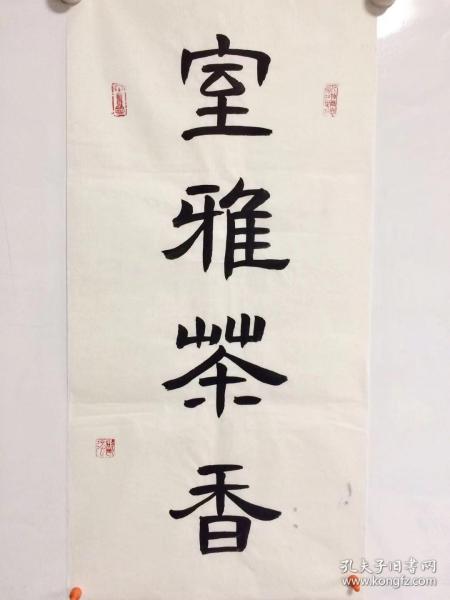 室雅茶香
孔夫子旧书网
www.kongfz.com